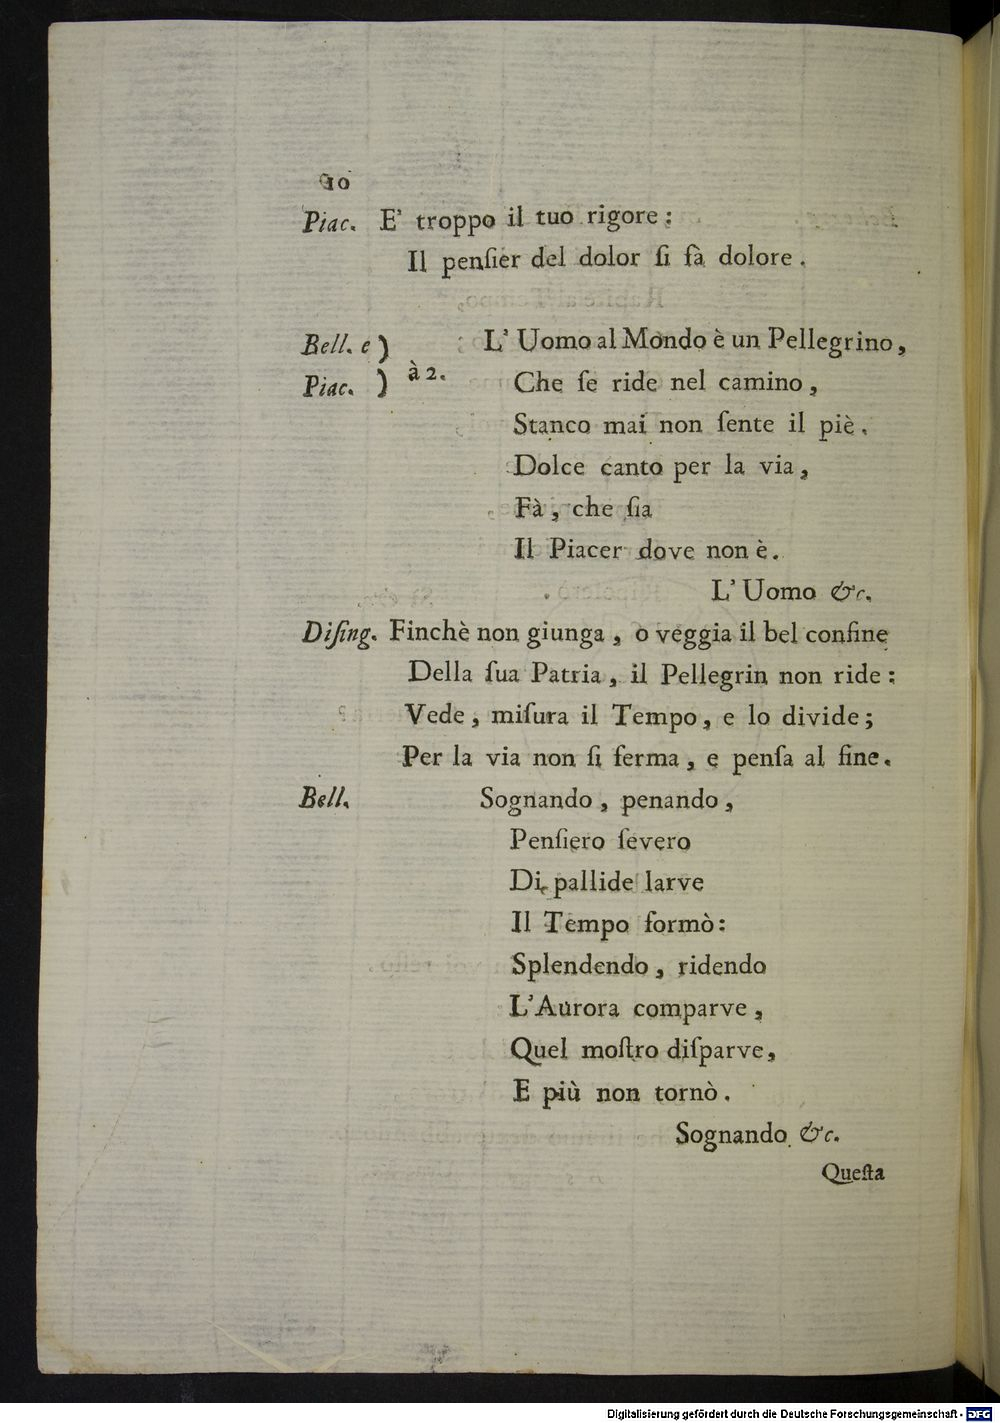 10
Piac. E' troppo il tuo rigore:
Il penſier del dolor ſi fà dolore.
Bell. e ) L' Uomo al Mondo è un Pellegrino,
à 2.
Piac. ) Che ſe ride nel camino,
Stanco mai non ſente il piè.
Dolce canto per la via,
Fà, che ſia
Il Piacer dove non è.
L' Uomo &c.
Diſing. Finchè non giunga, o veggia il bel confine
Della ſua Patria, il Pellegrin non ride:
Vede, miſura il Tempo, e lo divide;
Per la via non ſi ferma, e penſa al fine.
Bell. Sognando, penando,
Penſiero ſevero
Di pallide larve
Il Tempo formò:
Splendendo, ridendo
L'Aurora comparve,
Quel moſtro diſparve,
E più non tornò.
Sognando &c.
Queſta
Digitalisierung gefördert durch die Deutsche Forschungsgemeinschaft - DFG